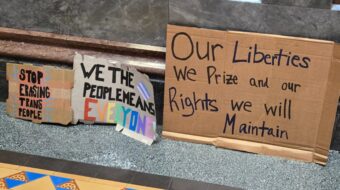 STOP
ERASING
TRANS
PEOPLE
WE THE
PEOPLE MEANS
EVERYONE
Our Liberties
We Prize and our
Rights we will
Maintain